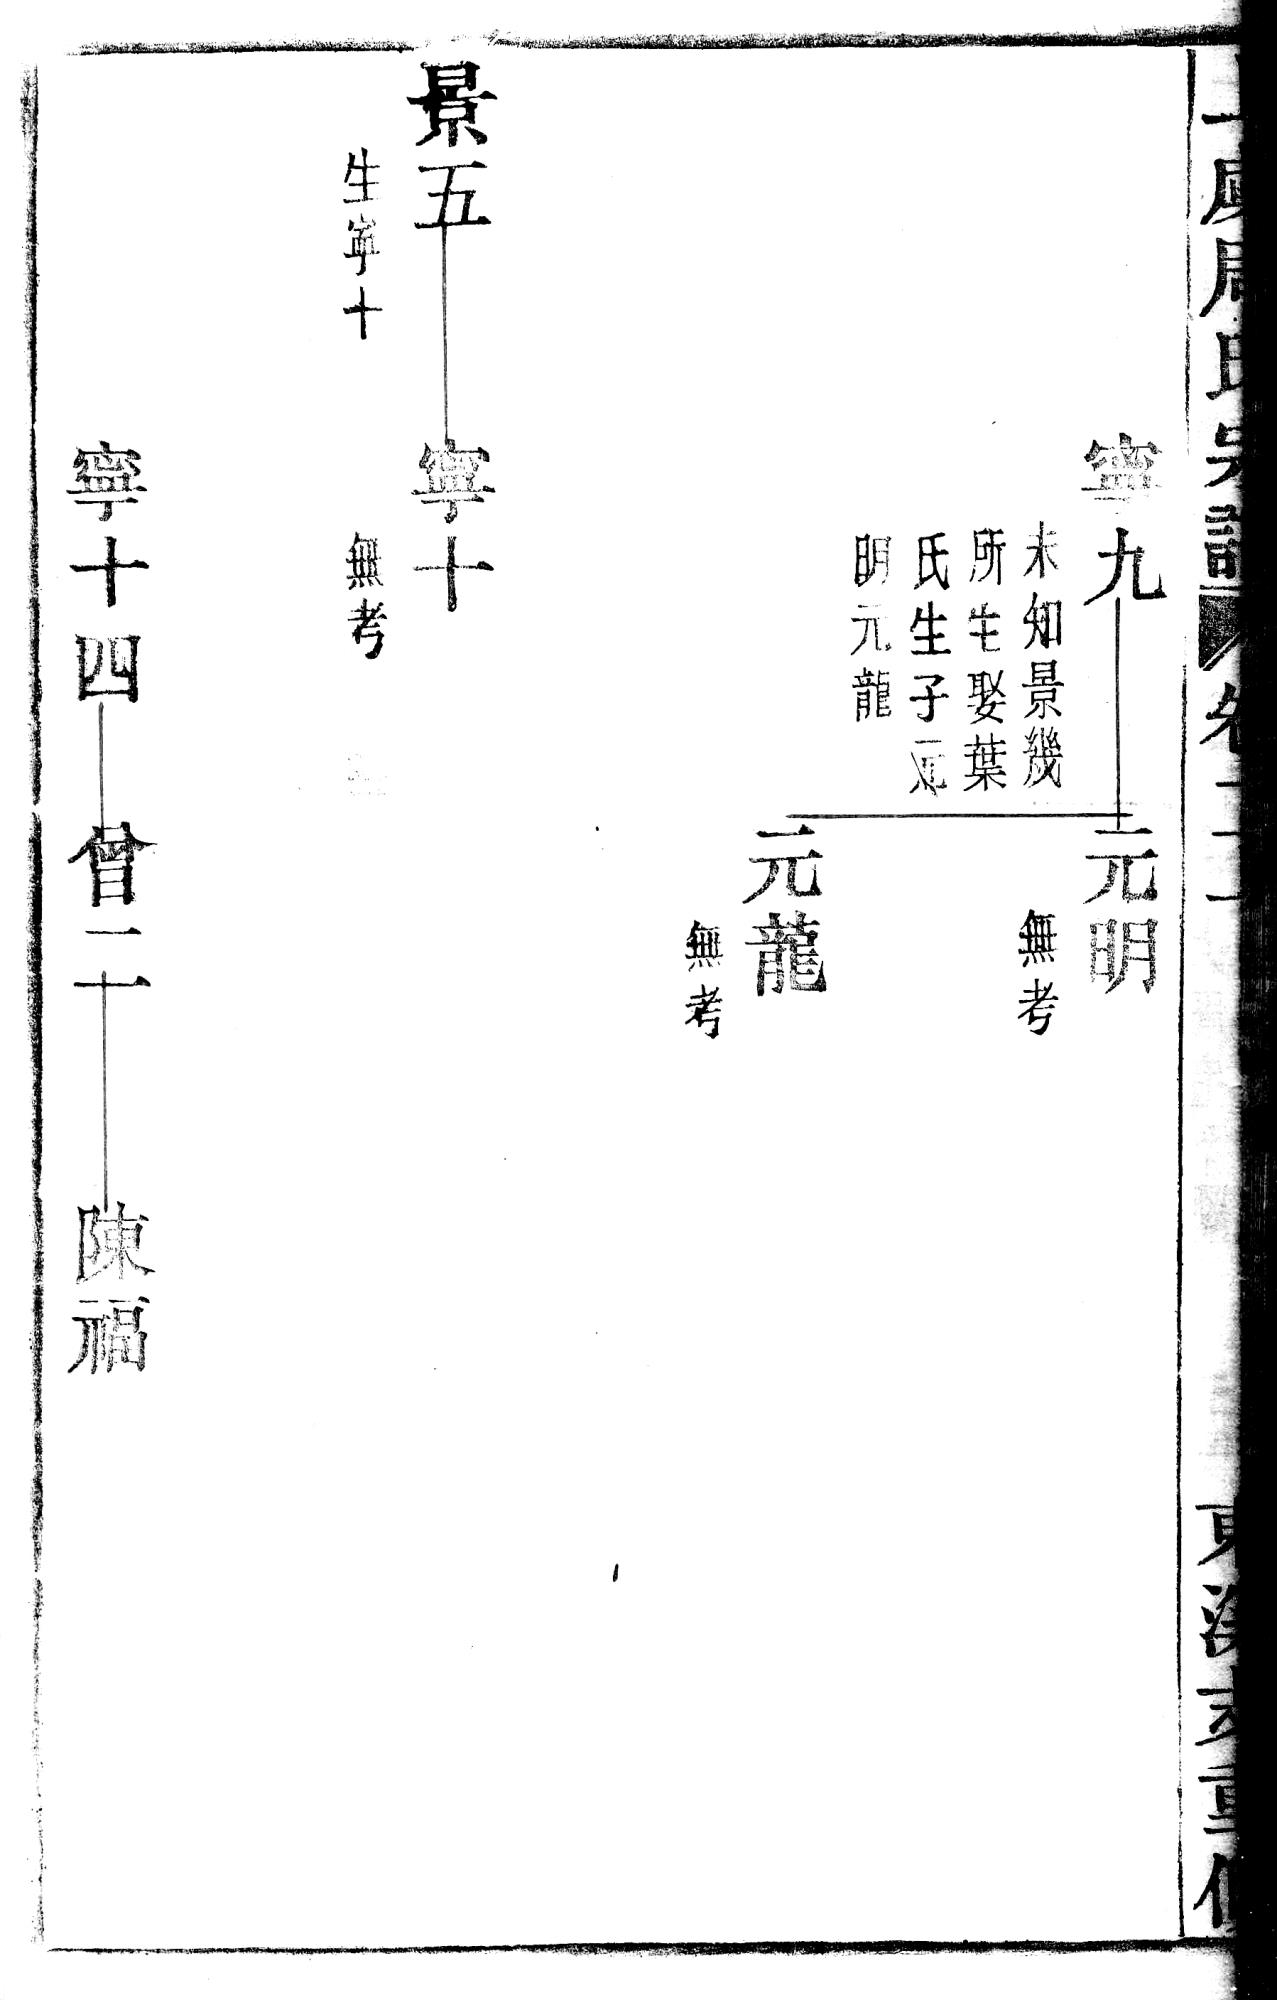 周氏宗譜
卷
重修
寧九
未知景幾
所生娶葉
氏生子元
明元龍
元明
無考
元龍
無考
景五
生寧十
寧十
無考
寧十四
曾二
陳福